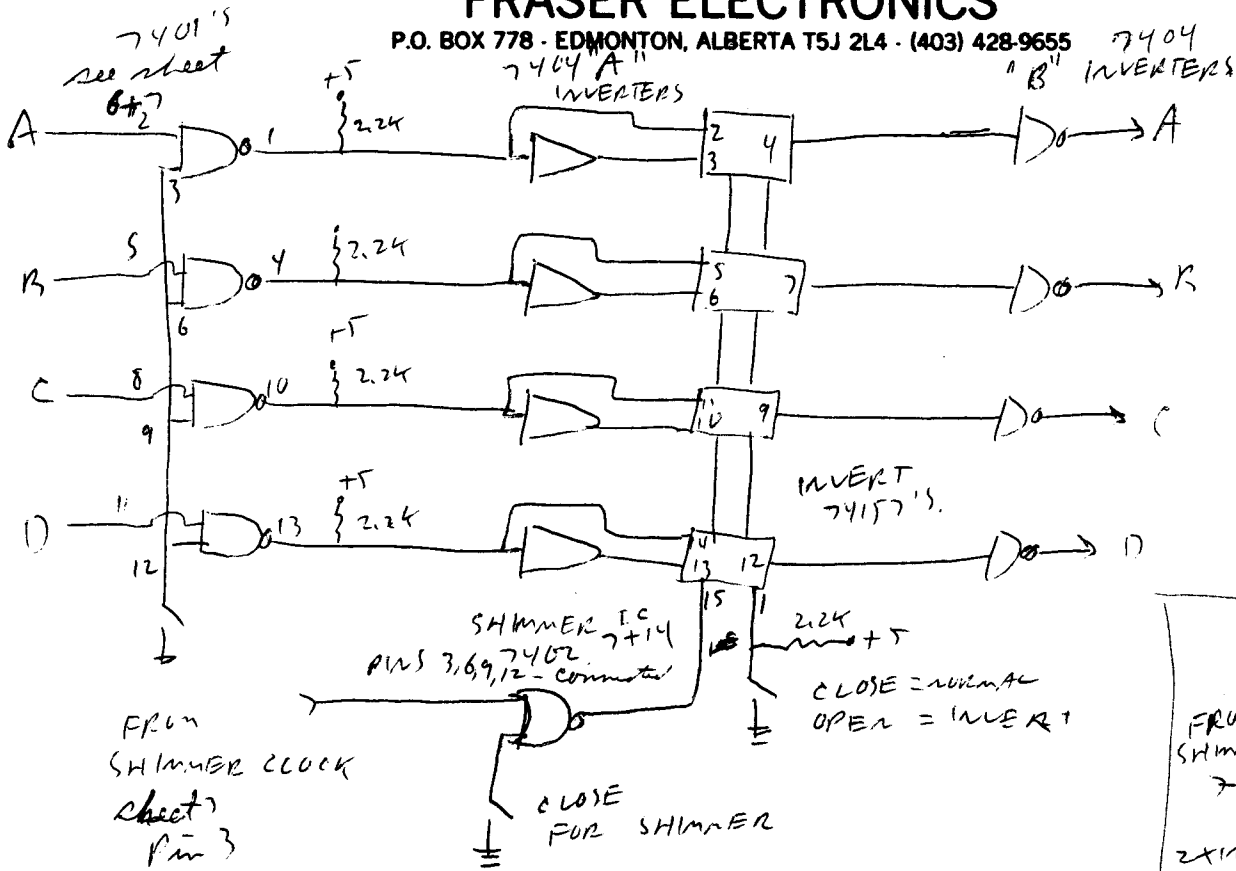 FRASER ELECTRONICS
P.O. BOX 778 - EDMONTON, ALBERTA T5J 2L4 - (403) 428-9655
7401's
see sheet
6+7
7404 "A"
INVERTERS
"B" 7404
INVERTERS
A
2
3
1
+5
2.2K
2
3
4
A
B
5
6
4
2.2K
5
6
7
B
C
8
9
10
+5
2.2K
11
10
9
C
INVERT
74157's.
D
11
12
13
+5
2.2K
14
13
12
D
15
1
2.2K
+5
SHIMMER I.C
7402 7+14
PINS 3,6,9,12 - connected
CLOSE = NORMAL
OPEN = INVERT
FROM
SHIMMER CLOCK
sheet 7
Pin 3
CLOSE
FOR SHIMMER